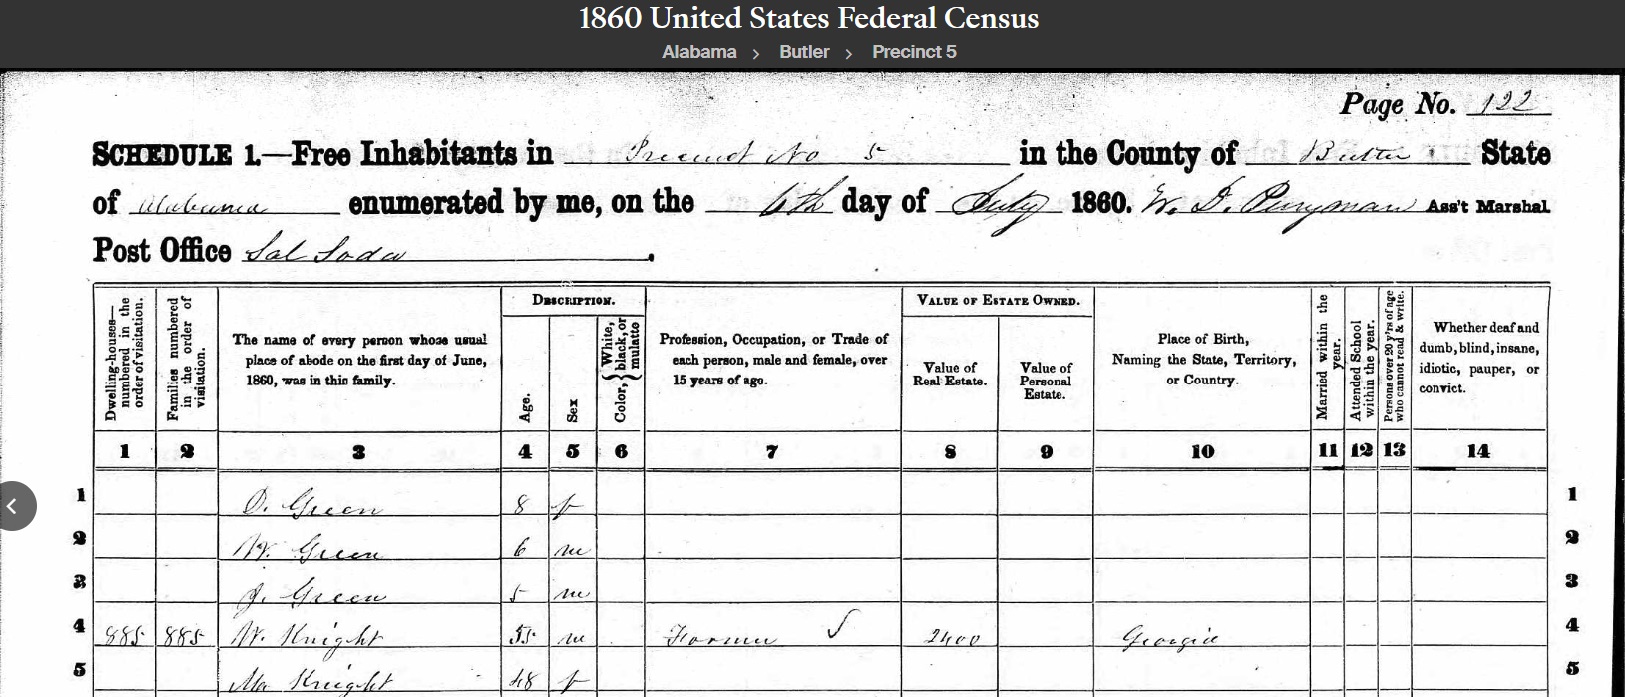 1860 United States Federal Census
Alabama > Butler > Precinct 5
Page No. 122
SCHEDULE 1.—Free Inhabitants in Precinct No 5 in the County of Butler State
of Alabama enumerated by me, on the 6th day of July 1860. W. D. Perryman Ass't Marshal
Post Office Sal Soda.
Dwelling-houses—numbered in the order of visitation.
Families numbered in the order of visitation.
The name of every person whose usual place of abode on the first day of June, 1860, was in this family.
DESCRIPTION.
Age.
Sex
Color, { White, black, or mulatto
Profession, Occupation, or Trade of each person, male and female, over 15 years of age.
VALUE OF ESTATE OWNED.
Value of Real Estate.
Value of Personal Estate.
Place of Birth, Naming the State, Territory, or Country.
Married within the year.
Attended School within the year.
Persons over 20 y'rs of age who cannot read & write.
Whether deaf and dumb, blind, insane, idiotic, pauper, or convict.
1 2 3 4 5 6 7 8 9 10 11 12 13 14
1 D. Green 8 f 1
2 W. Green 6 m 2
3 J. Green 5 m 3
4 885 885 W. Knight 55 m Farmer 2400 Georgia 4
5 Ma Knight 48 f 5